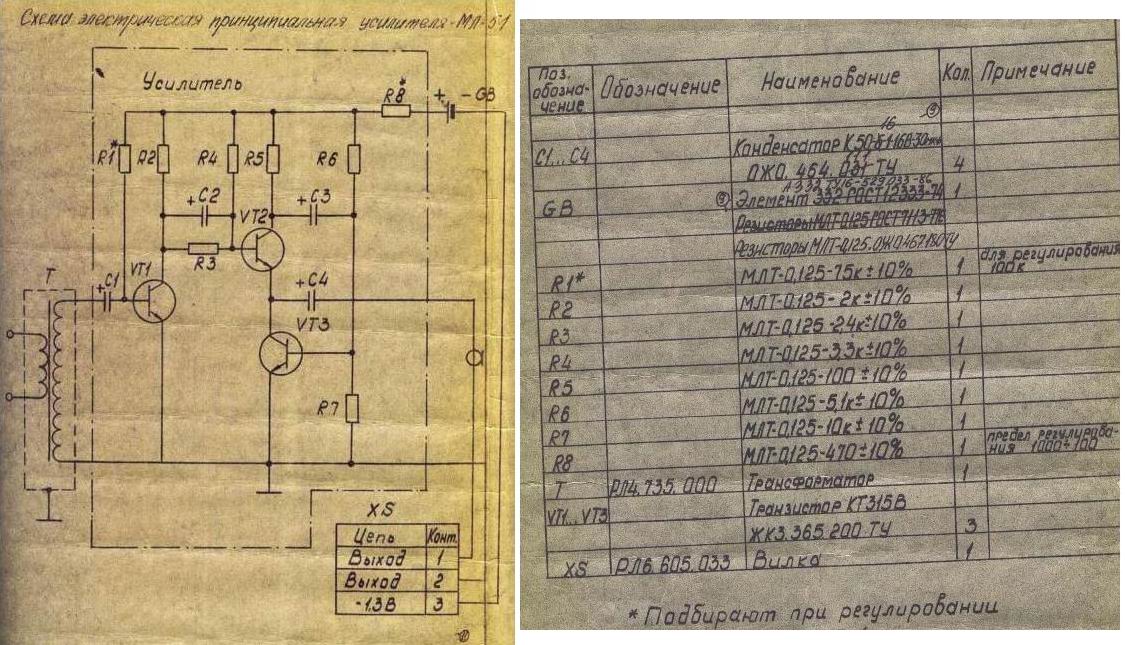 Схема электрическая принципиальная усилителя-МЛ-51
Усилитель
R8*
+ - GB
R1*
R2
R4
R5
R6
+ C2
+ C3
VT2
R3
+ C1
VT1
+ C4
VT3
T
R7
XS
Цепь Конт.
Выход 1
Выход 2
-1,3В 3
Поз. обозна-чение Обозначение Наименование Кол. Примечание
16
C1...C4 Конденсатор К50-
ОЖО.464. ТУ 4
GB Элемент 332 ГОСТ12333-74 1
Резисторы МЛТ-0,125 ГОСТ7113-
Резисторы МЛТ-0,125.ОЖО.467180ТУ
R1* МЛТ-0,125-75к±10% 1 для регулирования 100к
R2 МЛТ-0,125-2к±10% 1
R3 МЛТ-0,125-2,4к±10% 1
R4 МЛТ-0,125-3,3к±10% 1
R5 МЛТ-0,125-100±10% 1
R6 МЛТ-0,125-5,1к±10% 1
R7 МЛТ-0,125-10к±10% 1
R8 МЛТ-0,125-470±10% 1 предел регулирова-ния 1000÷100
T РЛ4.735.000 Трансформатор 1
VT1...VT3 Транзистор КТ315В
ЖК3.365.200 ТУ 3
XS РЛ6.605.033 Вилка 1
* Подбирают при регулировании